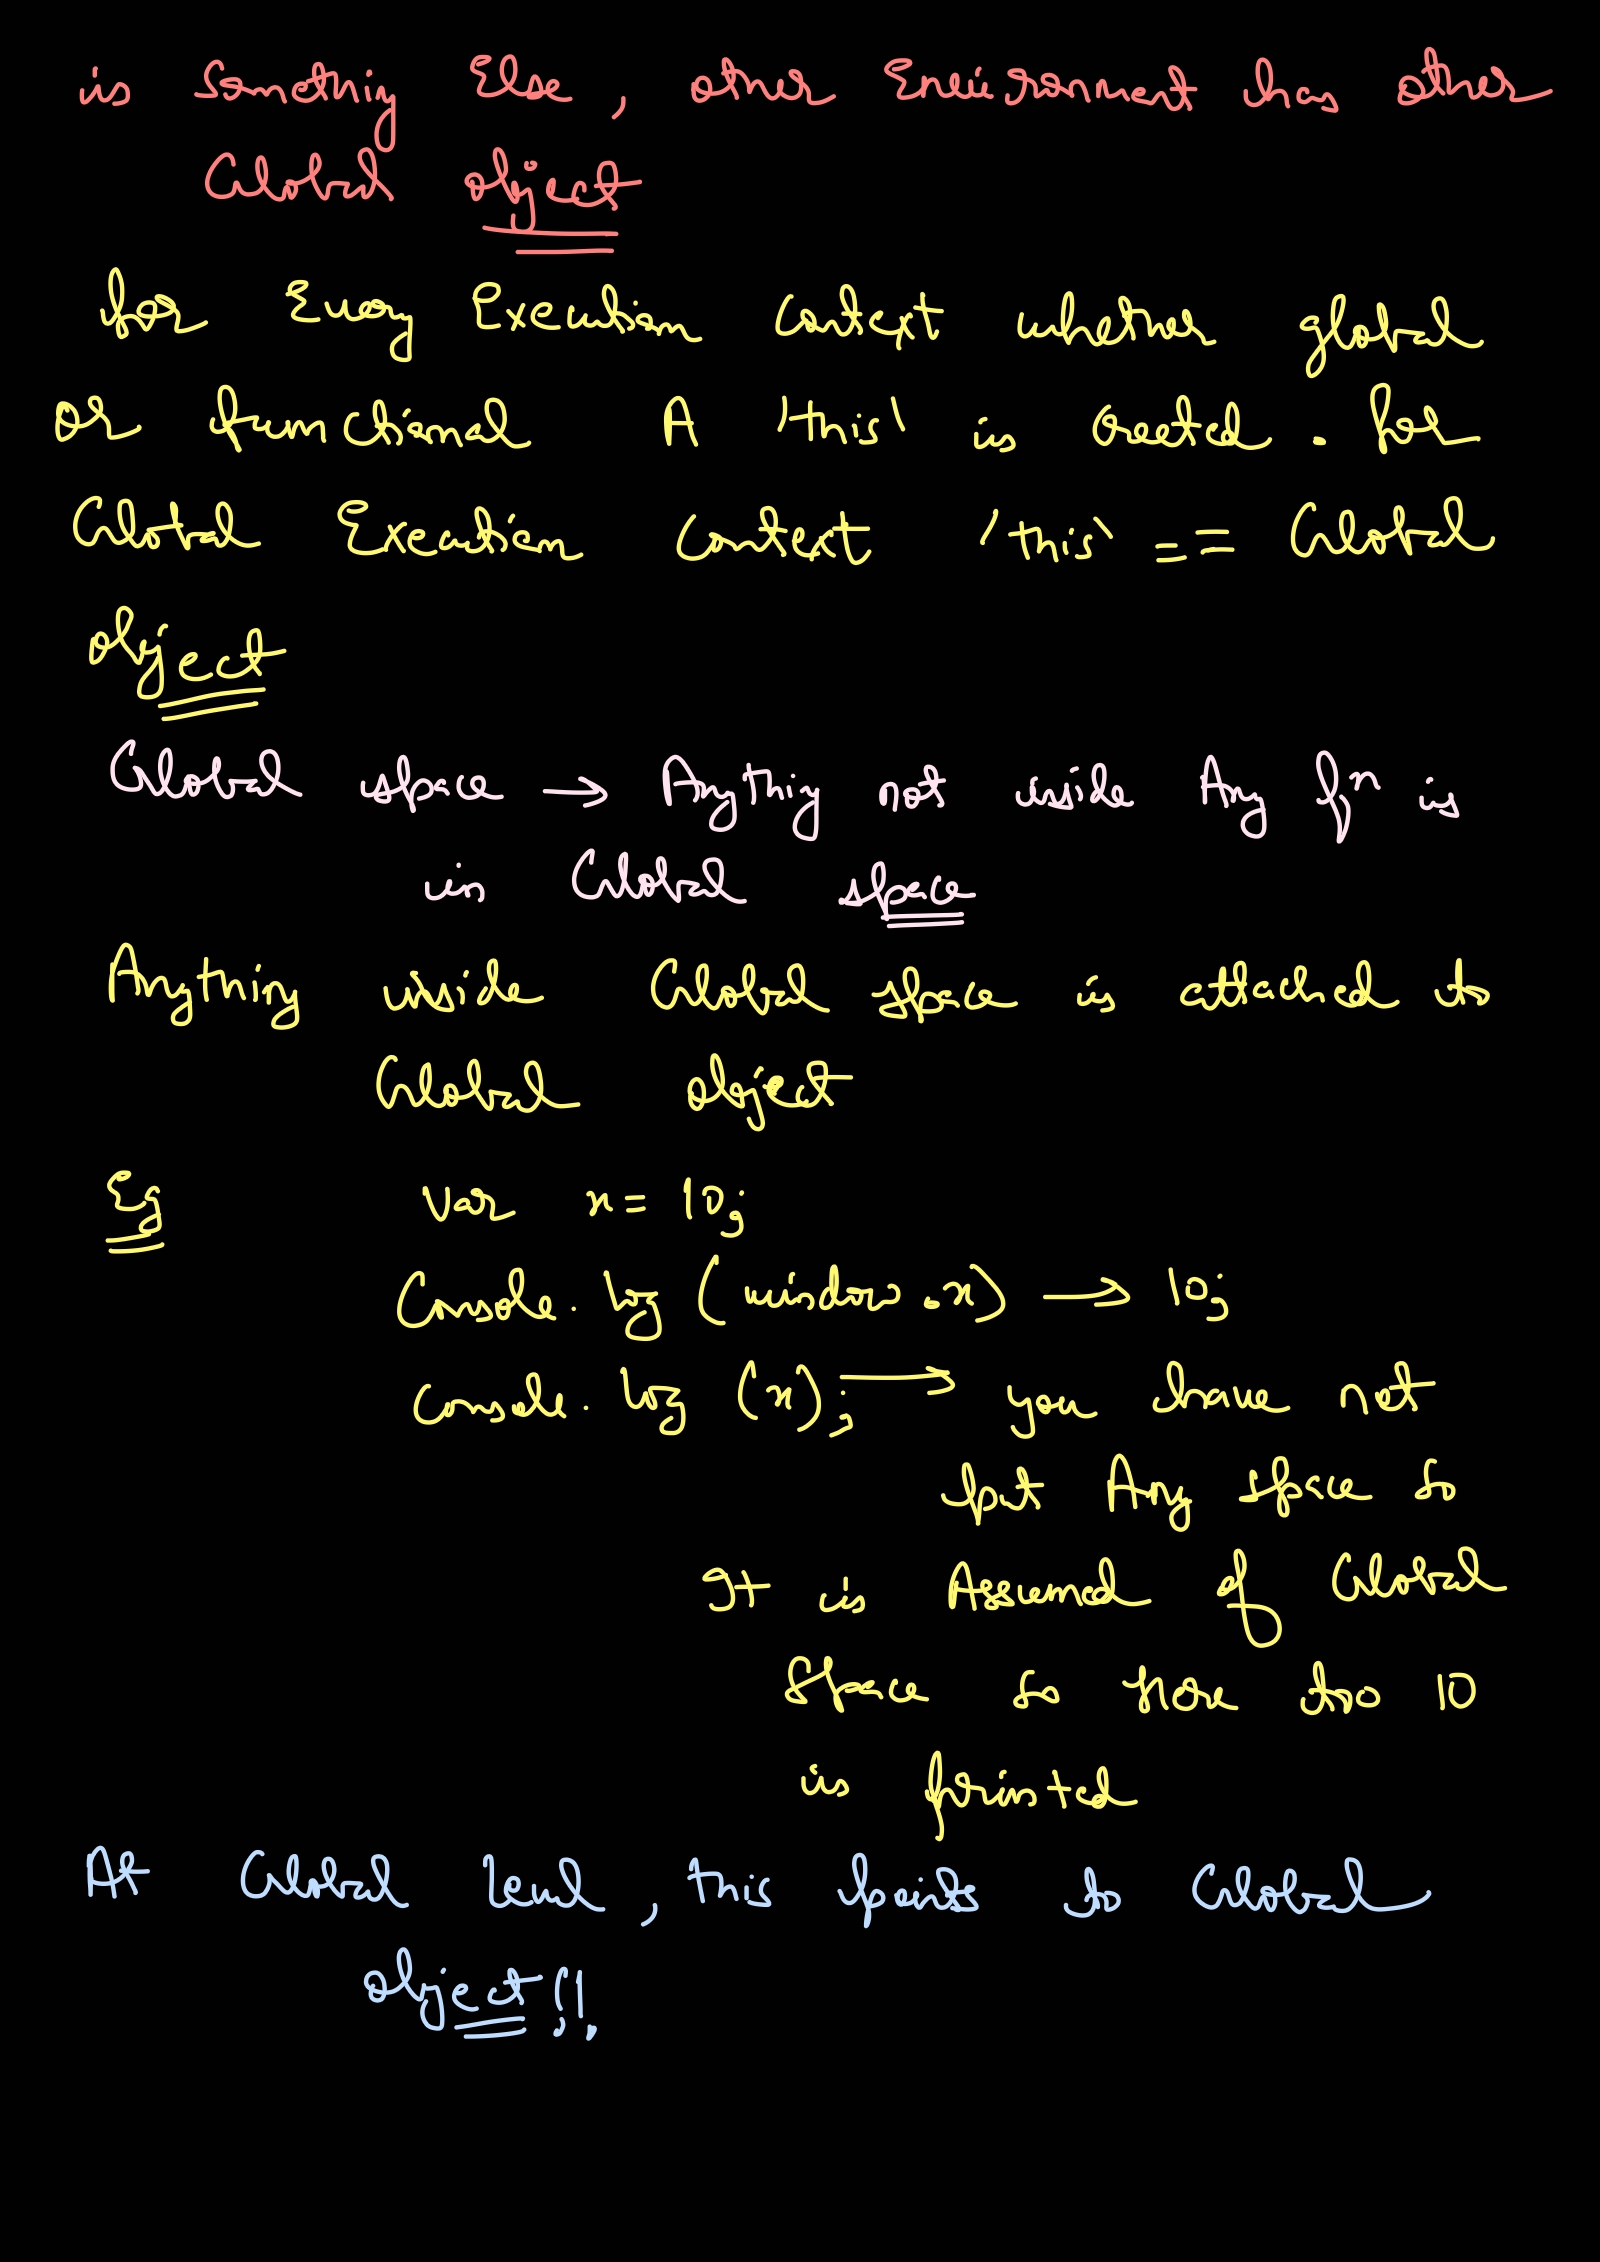 is Something Else, other Environment has other
Global object
for Every Execution Context whether global
or functional A 'this' is created. for
Global Execution Context 'this' === Global
object
Global space → Anything not inside Any fⁿ is
in Global space
Anything inside Global space is attached to
Global object
Eg var x = 10;
Console.log (window.x) → 10;
Console.log (x); → you have not
put Any space so
It is Assumed of Global
Space so here too 10
is printed
At Global level, this points to Global
object!!